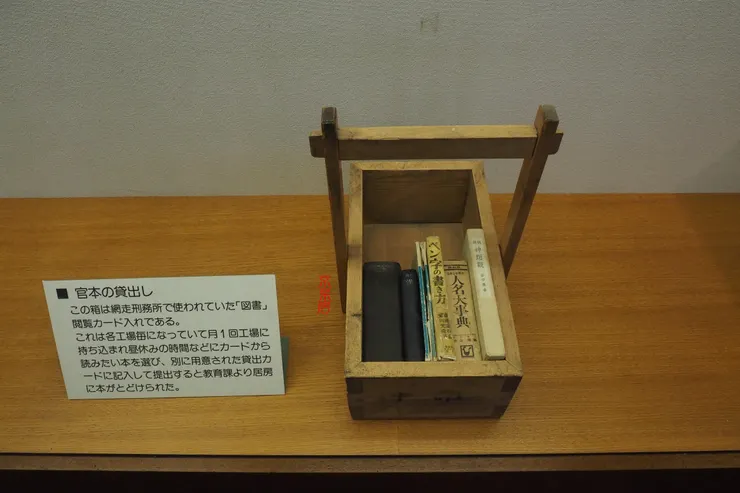 ■ 官本の貸出し
この箱は網走刑務所で使われていた「図書」
閲覧カード入れである。
これは各工場毎になっていて月1回工場に
持ち込まれ昼休みの時間などにカードから
読みたい本を選び、別に用意された貸出カ
ードに記入して提出すると教育課より居房
に本がとどけられた。
ペン字の書き方
人名大事典